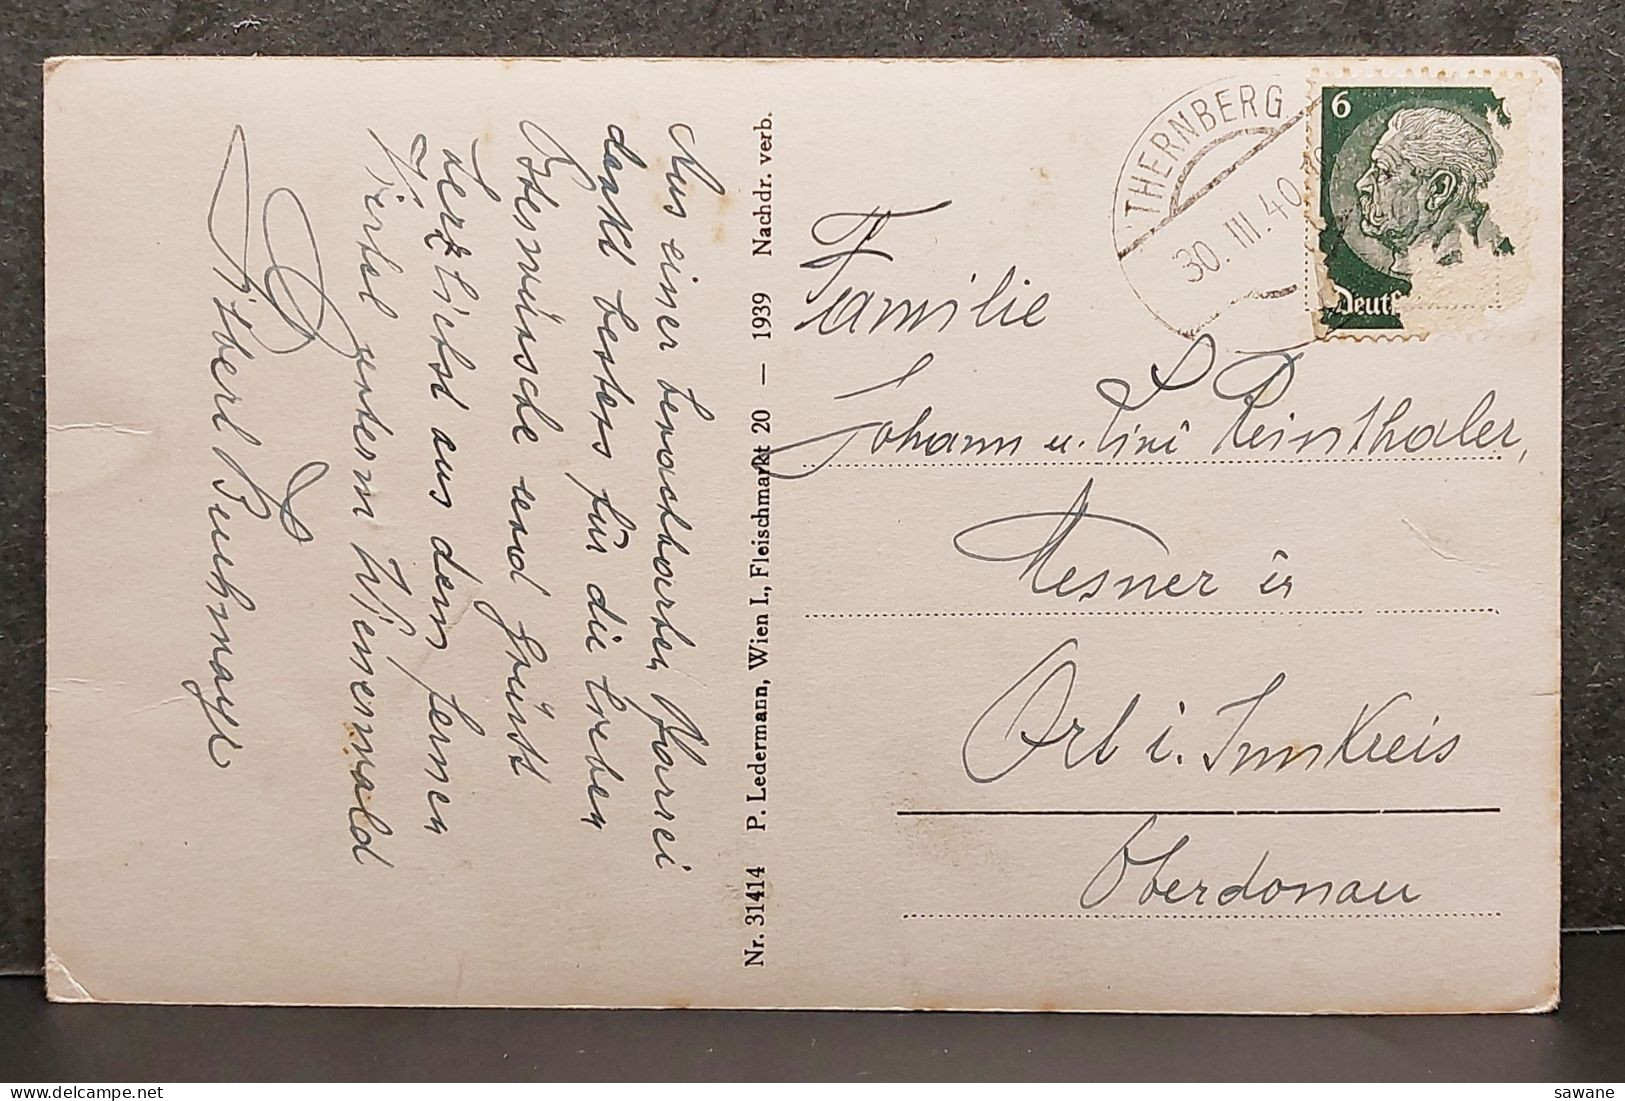 Aus einer benachbarten Pfarrei
dankt bestens für die lieben
Osterwünsche und grüsst
herzlichst aus dem fernen
Viertel unterm Wienerwald
Alberl Buchmayr
Nr. 31414 P. Ledermann, Wien I., Fleischmarkt 20 — 1939 Nachdr. verb.
THERNBERG
30. III. 40
6
Deutſ
Familie
Johann u. Tini Reinthaler,
Mesner in
Ort i. Innkreis
Oberdonau
sawane